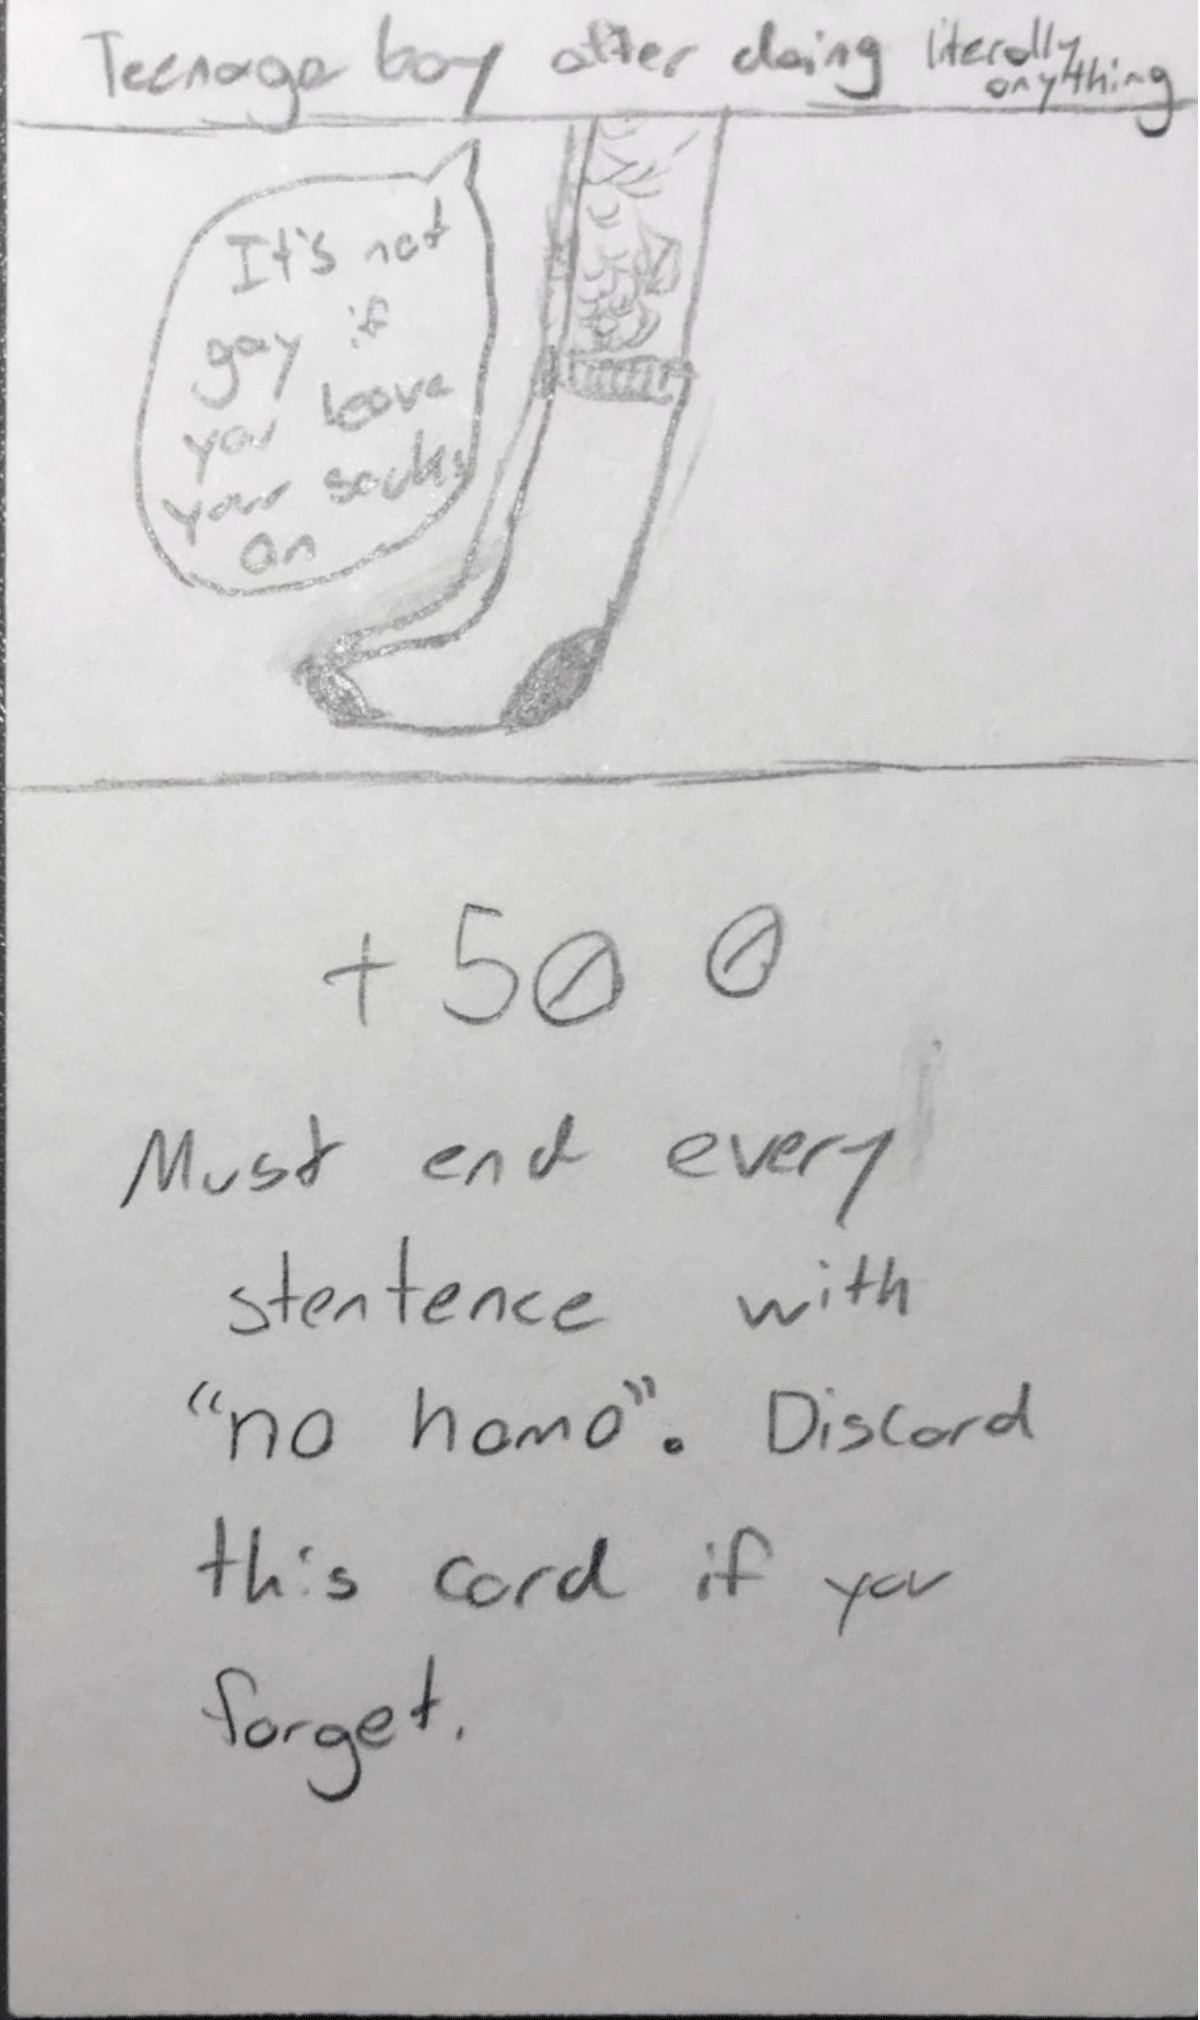 Teenage boy after doing literally
anything
It's not
gay if
you leave
your socks
on
+ 50 0
Must end every
stentence with
"no homo". Discard
this card if you
forget.